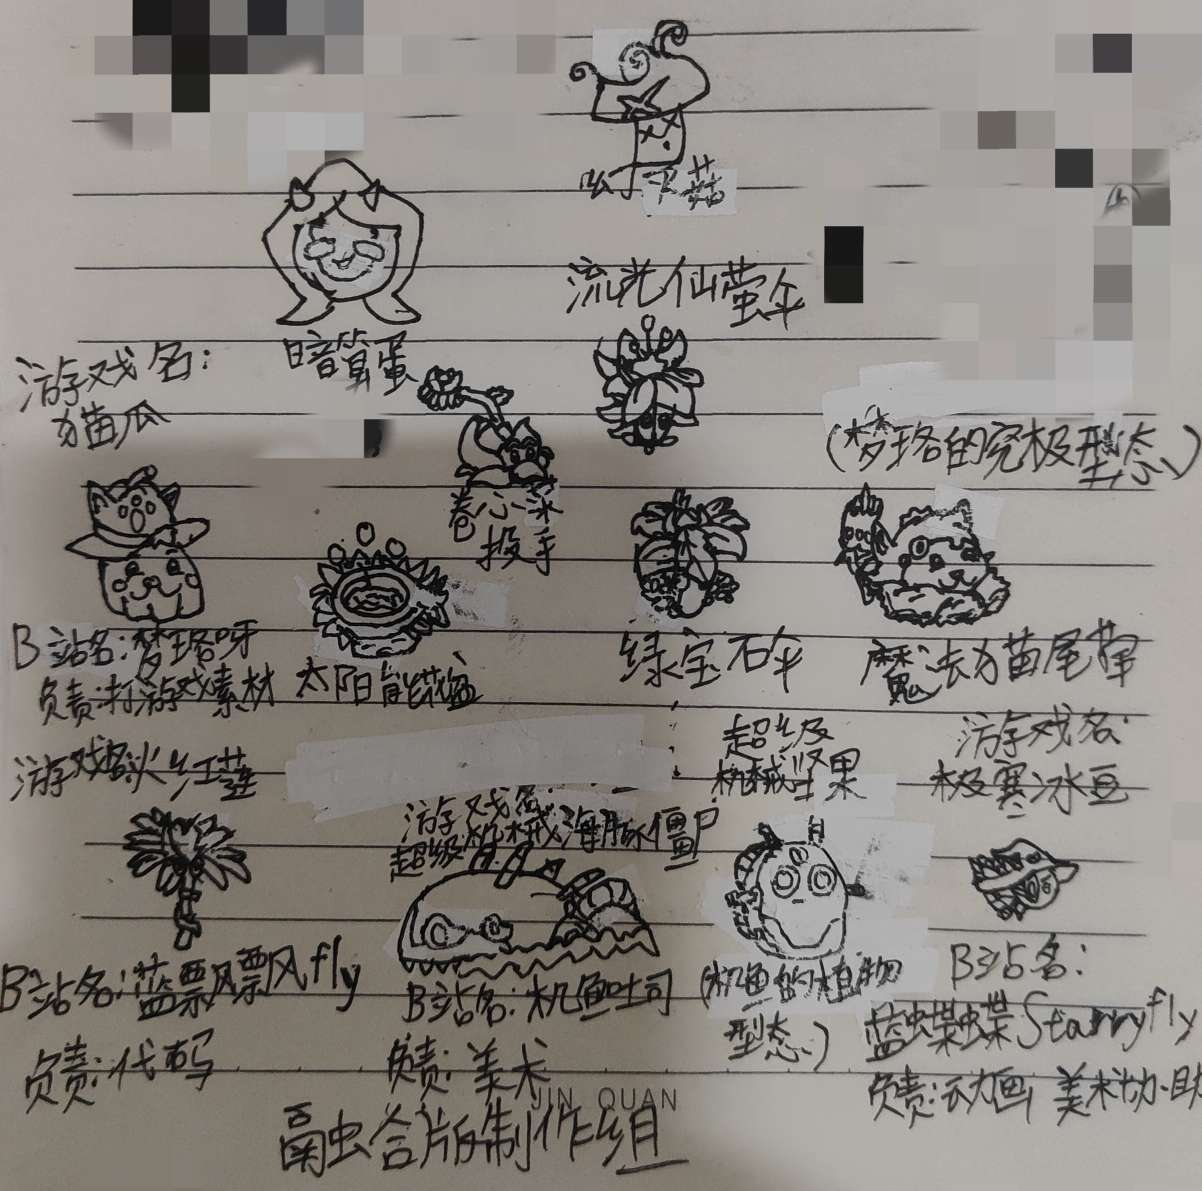 叮丁下菇
流光仙萤伞
暗算蛋
游戏名:
猫瓜
(梦珞的究极型态)
卷小冰
投手
B站名:梦珞呀
负责:打游戏素材
太阳能菇
绿宝石伞
魔法猫尾草
游戏名:火红莲
超级
机械坚果
游戏名:
极寒冰豆
游戏名:
超级机械海豚僵尸
B站名:蓝飘飘fly
负责:代码
B站名:机鱼吐司
负责:美术
(机鱼的植物
型态)
B站名:
蓝蝶蝶Starryfly
负责:动画,美术协助
JIN QUAN
融合版制作组